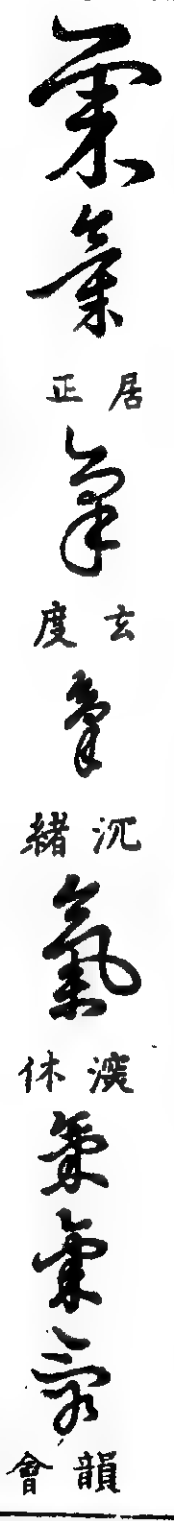 氣
氣
居正
氣
玄度
氣
沉緒
氣
休
氣
氣
氣
韻會